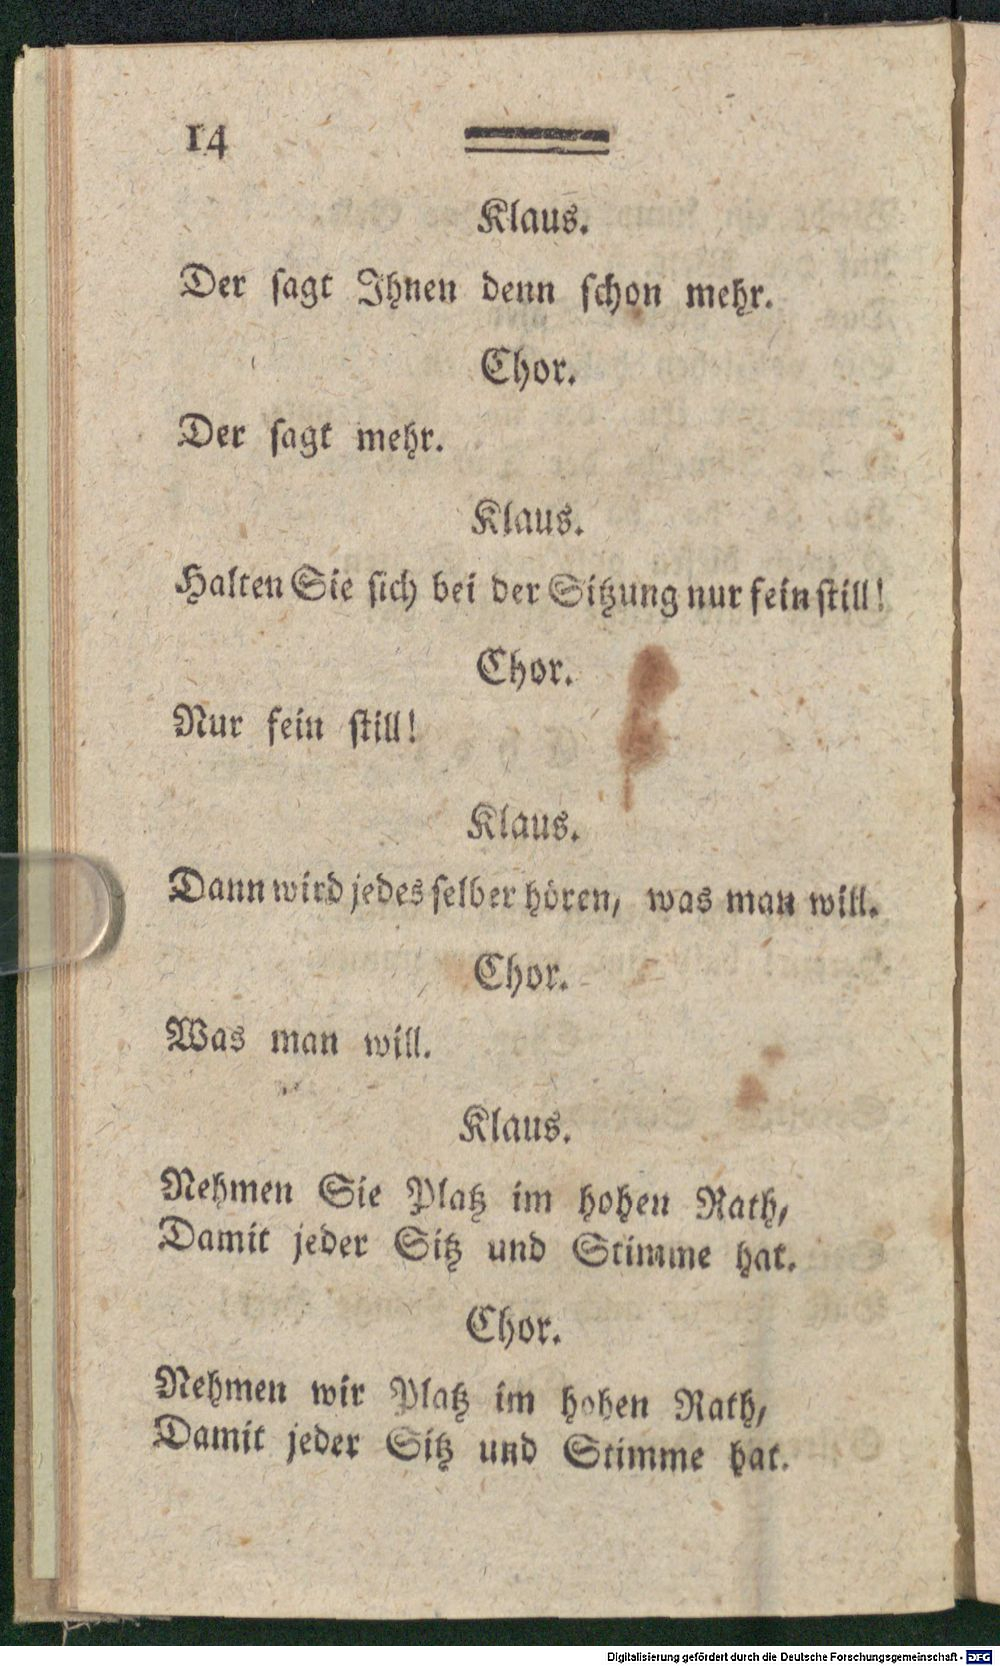 14
Klaus.
Der ſagt Ihnen denn ſchon mehr.
Chor.
Der ſagt mehr.
Klaus.
Halten Sie ſich bei der Sitzung nur fein ſtill!
Chor.
Nur fein ſtill!
Klaus.
Dann wird jedes ſelber hören, was man will.
Chor.
Was man will.
Klaus.
Nehmen Sie Platz im hohen Rath,
Damit jeder Sitz und Stimme hat.
Chor.
Nehmen wir Platz im hohen Rath,
Damit jeder Sitz und Stimme hat.
Digitalisierung gefördert durch die Deutsche Forschungsgemeinschaft - DFG